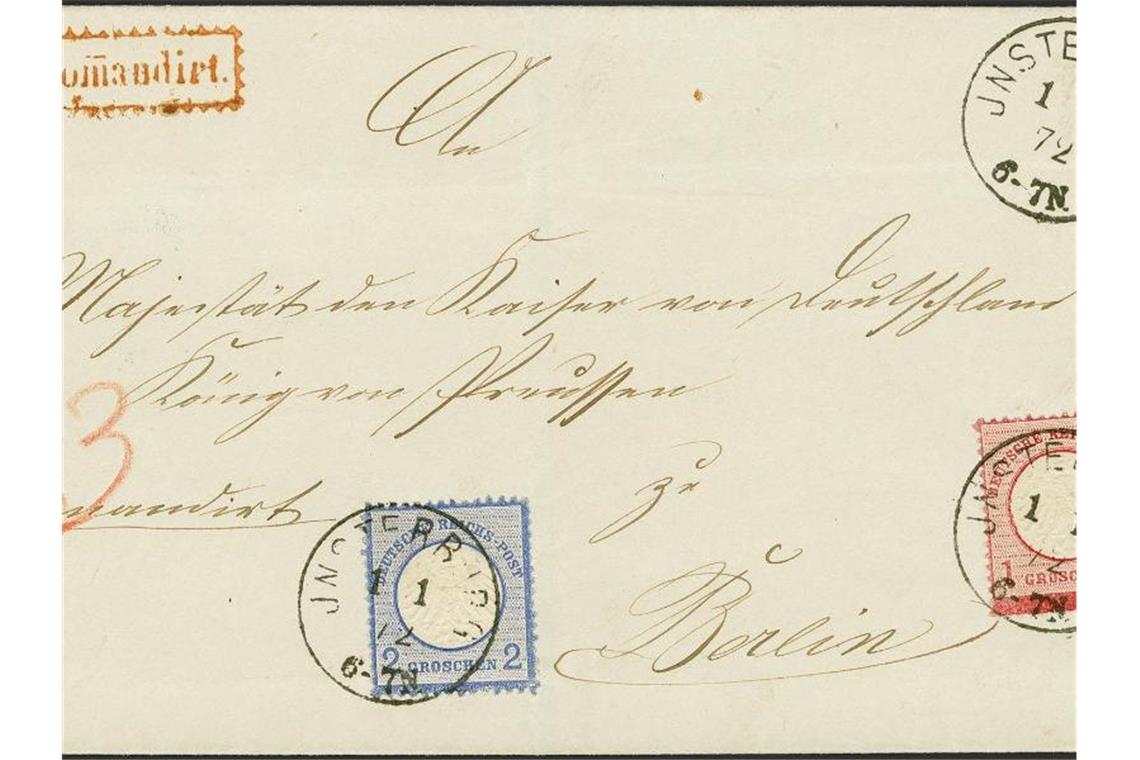 omandirt.
JNSTE
1
72
6-7N.
An
Majestät den Kaiser von Deutschland
König von Preussen
3
mandirt
zu
Berlin
DEUTSCHE REICHS-POST
2 GROSCHEN 2
JNSTERBURG
1 1
72
6-7N.
DEUTSCHE RE
1 GROSC
JNSTE
1 1
72
6-7N